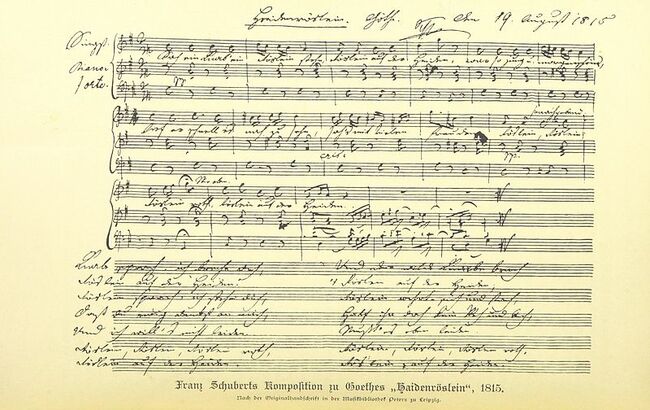 Heidenröslein. Göthe. Den 19. August 1815
Singst.
Piano-
forte.
Sah ein Knab ein Röslein stehn, Röslein auf der Heiden, war so jung u. morgenschön,
pp
nachgebend
lief er schnell es nah zu sehn, sah's mit vielen Freuden. Röslein, Röslein,
cres.
pp
Röslein roth, Röslein auf der Heiden.
Knabe sprach: ich breche dich,
Röslein auf der Heiden.
Röslein sprach: ich steche dich,
Daß du ewig denkst an mich,
Und ich will's nicht leiden.
Röslein, Röslein, Röslein roth,
Röslein auf der Heiden.
Und der wilde Knabe brach
's Röslein auf der Heiden,
Röslein wehrte sich und stach,
Half ihr doch kein Weh und Ach,
Mußt' es eben leiden.
Röslein, Röslein, Röslein roth,
Röslein auf der Heiden.
Franz Schuberts Komposition zu Goethes „Haidenröslein“, 1815.
Nach der Originalhandschrift in der Musikbibliothek Peters zu Leipzig.